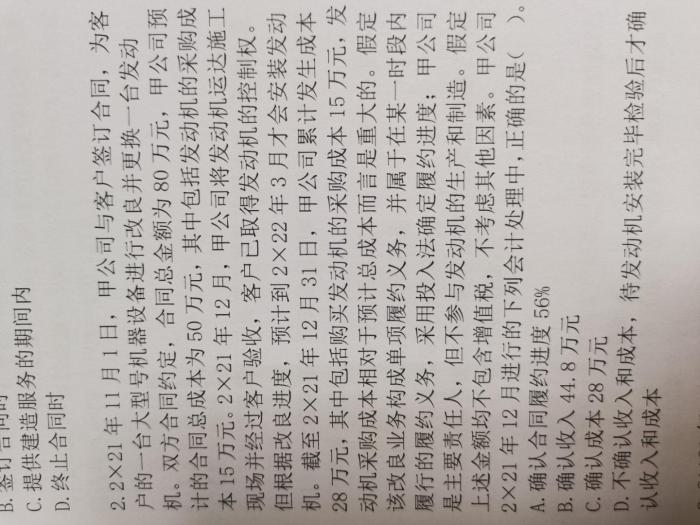 C. 提供建造服务的期间内
D. 终止合同时
2. 2×21年11月1日，甲公司与客户签订合同，为客
户的一台大型号机器设备进行改良并更换一台发动
机。双方合同约定，合同总金额为80万元，甲公司预
计的合同总成本为50万元，其中包括发动机的采购成
本15万元。2×21年12月，甲公司将发动机运达施工
现场并经过客户验收，客户已取得发动机的控制权。
但根据改良进度，预计到2×22年3月才会安装发动
机。截至2×21年12月31日，甲公司累计发生成本
28万元，其中包括购买发动机的采购成本15万元，发
动机采购成本相对于预计总成本而言是重大的。假定
该改良业务构成单项履约义务，并属于在某一时段内
履行的履约义务，采用投入法确定履约进度；甲公司
是主要责任人，但不参与发动机的生产和制造。假定
上述金额均不包含增值税，不考虑其他因素。甲公司
2×21年12月进行的下列会计处理中，正确的是(  )。
A. 确认合同履约进度56%
B. 确认收入44.8万元
C. 确认成本28万元
D. 不确认收入和成本，待发动机安装完毕检验后才确
认收入和成本